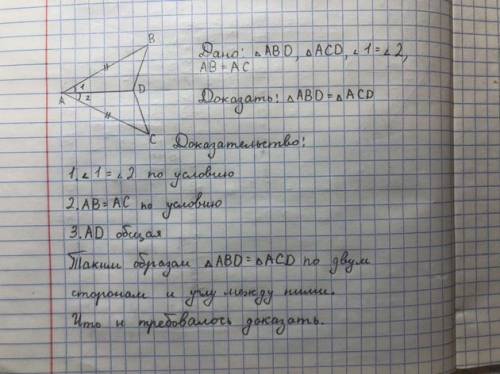 B
Дано: △ABD, △ACD, ∠1=∠2,
AB=AC
A 1 2 D
Доказать: △ABD=△ACD
C
Доказательство:
1. ∠1=∠2 по условию
2. AB=AC по условию
3. AD общая
Таким образом △ABD=△ACD по двум
сторонам и углу между ними.
Что и требовалось доказать.